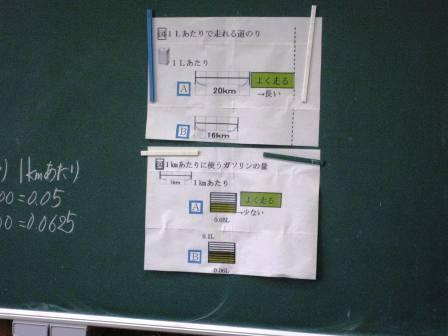 図1Lあたりで走れる道のり
1Lあたり
A
20km
よく走る
→長い
B
16km
図1kmあたりに使うガソリンの量
1km
1kmあたり
A
よく走る
→少ない
0.05L
0.1L
B
0.06L
) 1kmあたり
00=0.05
00=0.0625